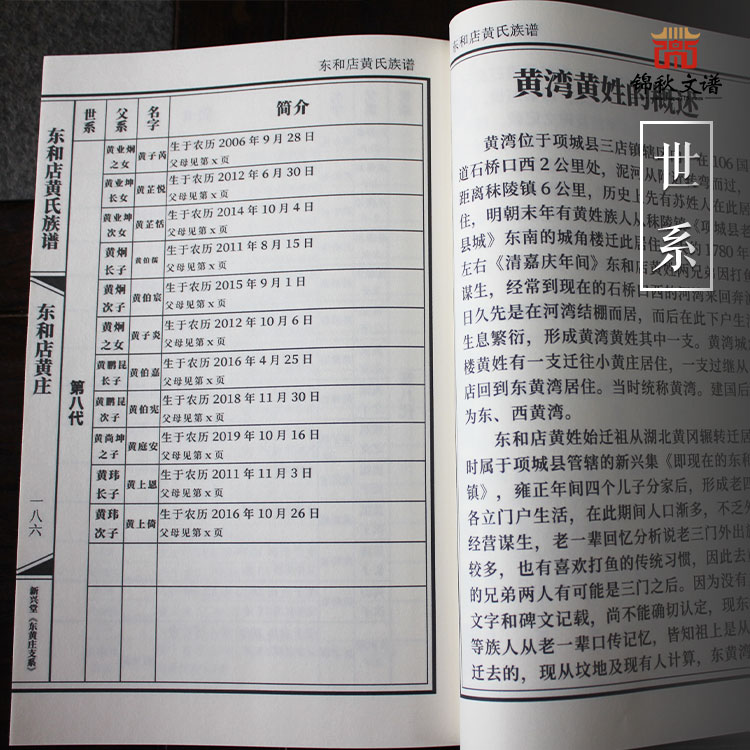 东和店黄氏族谱
世系 父系 名字 简介
黄业炯之女 黄子芮 生于农历 2006 年 9 月 28 日
父母见第 x 页
黄业坤长女 黄芷悦 生于农历 2012 年 6 月 30 日
父母见第 x 页
黄业坤次女 黄芷恬 生于农历 2014 年 10 月 4 日
父母见第 x 页
黄炯长子 黄伯儒 生于农历 2011 年 8 月 15 日
父母见第 x 页
黄炯次子 黄伯宸 生于农历 2015 年 9 月 1 日
父母见第 x 页
黄炯之女 黄子炎 生于农历 2012 年 10 月 6 日
父母见第 x 页
黄鹏昆长子 黄伯嘉 生于农历 2016 年 4 月 25 日
父母见第 x 页
黄鹏昆次子 黄伯宪 生于农历 2018 年 11 月 30 日
父母见第 x 页
黄尚坤之子 黄庭安 生于农历 2019 年 10 月 16 日
父母见第 x 页
黄玮长子 黄上恩 生于农历 2011 年 11 月 3 日
父母见第 x 页
黄玮次子 黄上倚 生于农历 2016 年 10 月 26 日
父母见第 x 页
第八代
东和店黄氏族谱
东和店黄庄
一八六
新兴堂《东黄庄支系》
东和店黄氏族谱
錦秋文谱
世系
黄湾黄姓的概述
黄湾位于项城县三店镇辖 在 106 国
道石桥口西 2 公里处，泥河从 湾而过，
距离秣陵镇 6 公里，历史上先有苏姓人在此居
住，明朝末年有黄姓族人从秣陵镇《项城县老
县城》东南的城角楼迁此居住 的 1780 年
左右《清嘉庆年间》东和店黄姓两兄弟因打鱼
谋生，经常到现在的石桥口西的河湾来回奔
日久先是在河湾结棚而居，而后在此下户生
生息繁衍，形成黄湾黄姓其中一支。黄湾城
楼黄姓有一支迁往小黄庄居住，一支过继从
店回到东黄湾居住。当时统称黄湾。建国后
为东、西黄湾。
东和店黄姓始迁祖从湖北黄冈辗转迁居
时属于项城县管辖的新兴集《即现在的东和
镇》，雍正年间四个儿子分家后，形成老四
各立门户生活，在此期间人口渐多，不乏
经营谋生，老一辈回忆分析说老三门外出
较多，也有喜欢打鱼的传统习惯，因此去
的兄弟两人有可能是三门之后。因为没有
文字和碑文记载，尚不能确切认定，现东
等族人从老一辈口传记忆，皆知祖上是从
迁去的，现从坟地及现有人计算，东黄湾